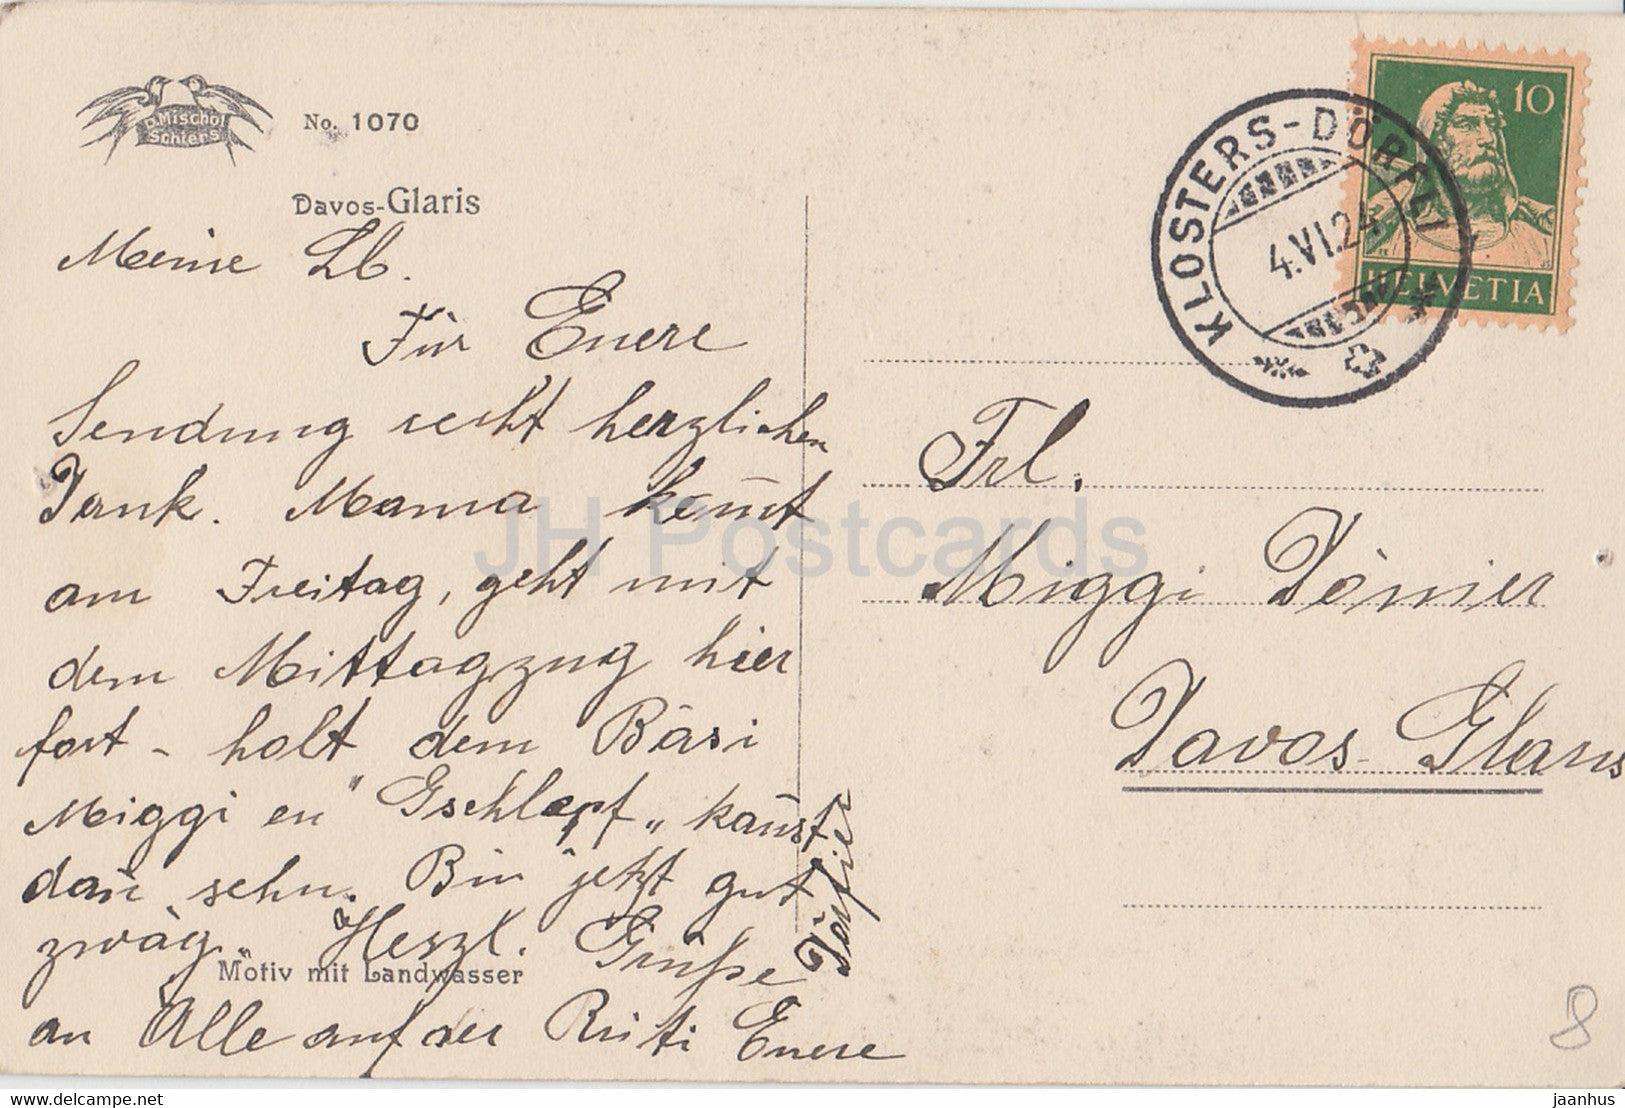 D. Mischol
Schiers
No. 1070
Davos-Glaris
Meine Lb.
Für Euere
Sendung recht herzlichen
Dank. Mama kom̄t
am Freitag, geht mit
dem Mittagzug hier
fort - holt dem Bäsi
Miggi en "Gschlepf" kan̄st
dan̄ sehn. Bin jetzt gut
zwäg. Herzl. Grüsse
an Alle auf der Rüti Euere
Motiv mit Landwasser
KLOSTERS-DÖRFLI
4.VI.24
10
HELVETIA
Frl.
Miggi
Davos-Glaris
8
JH Postcards
www.delcampe.net
jaanhus